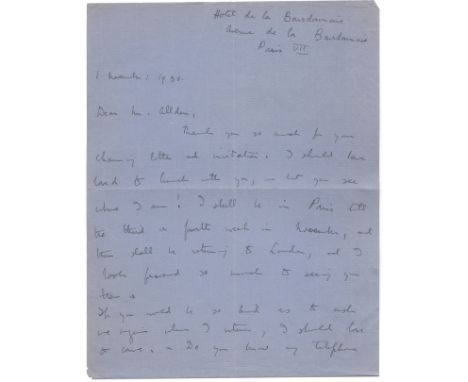 Hotel de la Bourdonnais
Avenue de la Bourdonnais
Paris VII
1 November: 1930.
Dear Mr.
Thank you so much for your
charming letter and invitation. I should have
loved to lunch with you, – but you see
where I am! I shall be in Paris till
the third or fourth week in November, and
then shall be returning to London, and I
look forward so much to seeing you
then.
If you would be so kind as to ask
me again when I return, I should love
to come. – Do you know my telephone